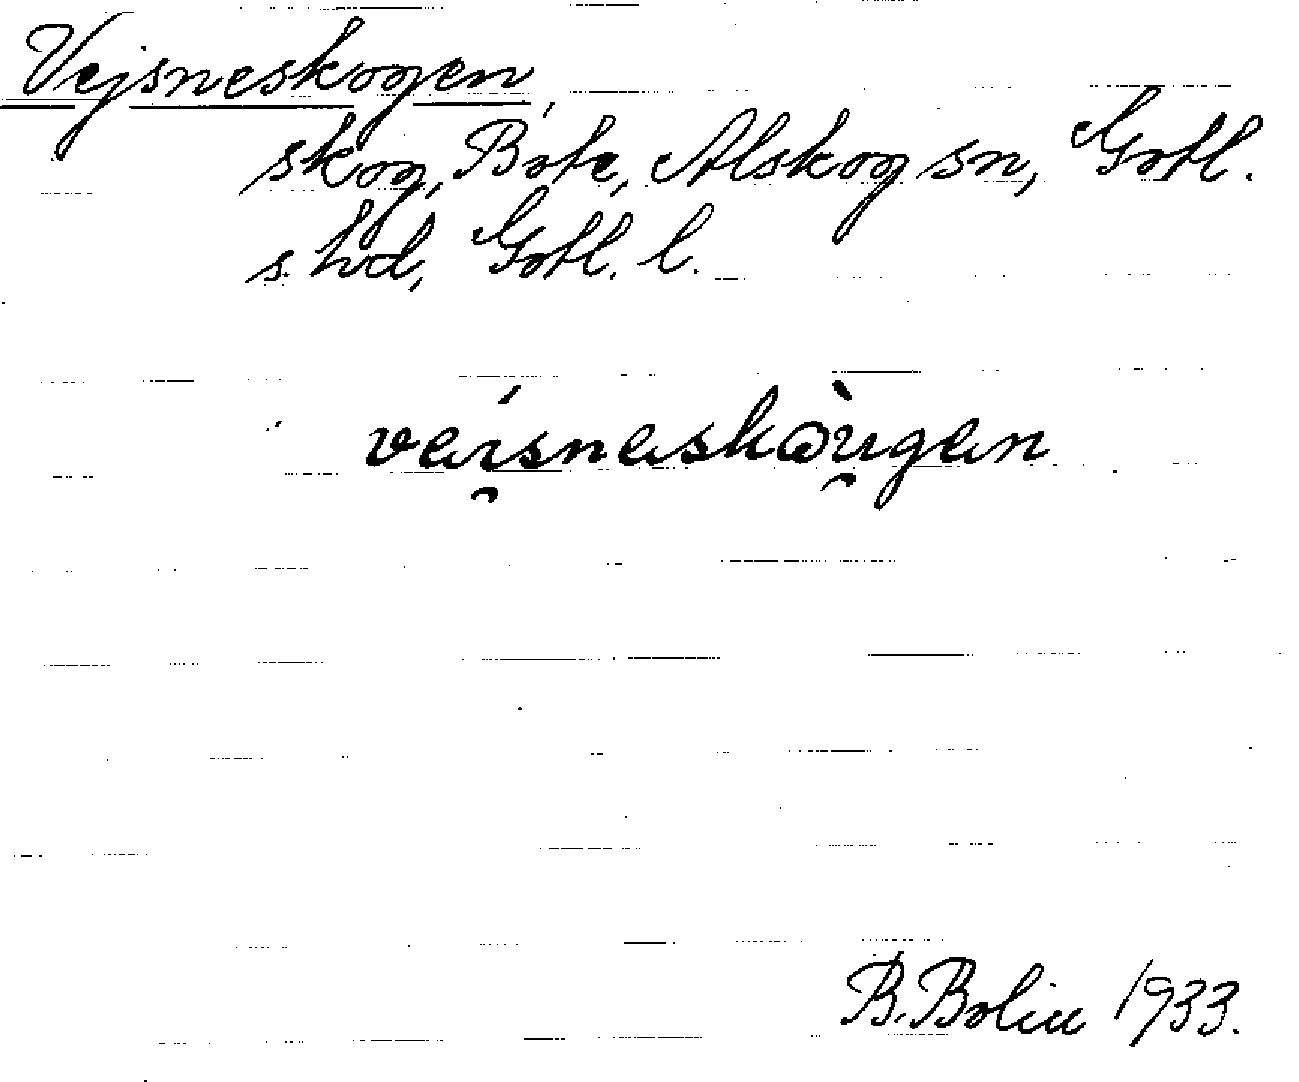 Vejsneskogen,
skog, Bote, Alskog sn, Gotl.
s. hd, Gotl. l.
vaí̯sneskɷù̯gen
B. Bolin 1933.